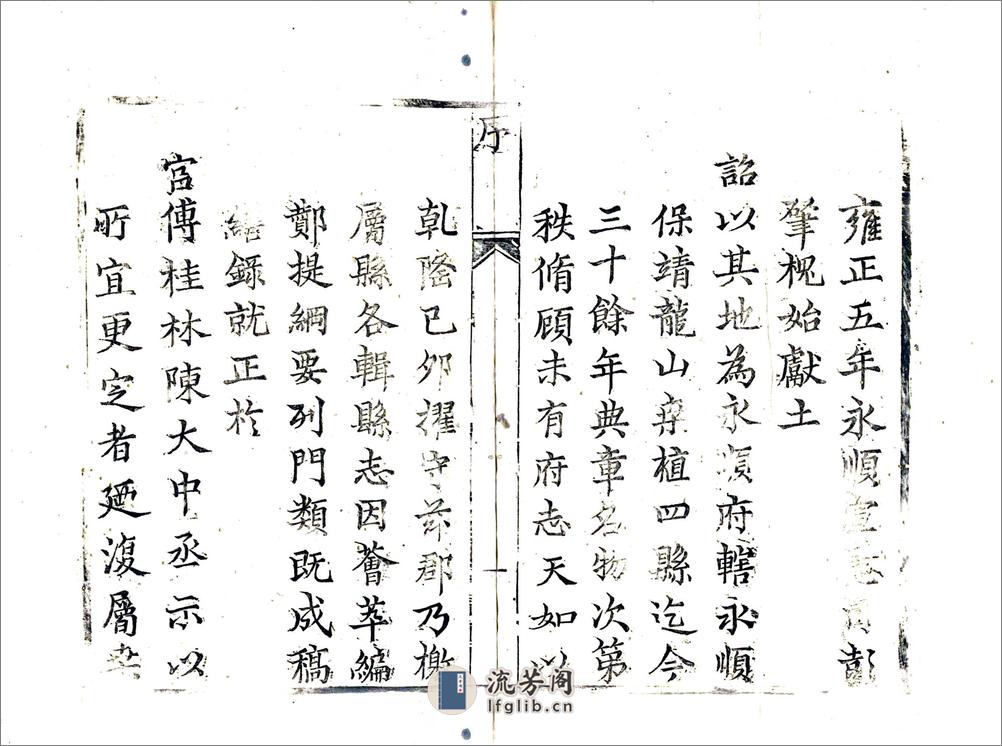 雍正五年永順宣慰司彭
肇槐始獻土
詔以其地為永順府轄永順
保靖龍山桒植四縣迄今
三十餘年典章名物次第
秩脩顧未有府志天如以
序
一
乾隆己夘擢守茲郡乃檄
屬縣各輯縣志因薈萃編
鄭提綱要列門類既成稿
繕錄就正於
宮傅桂林陳大中丞示以
所宜更定者廼復屬
流芳阁
lfglib.cn